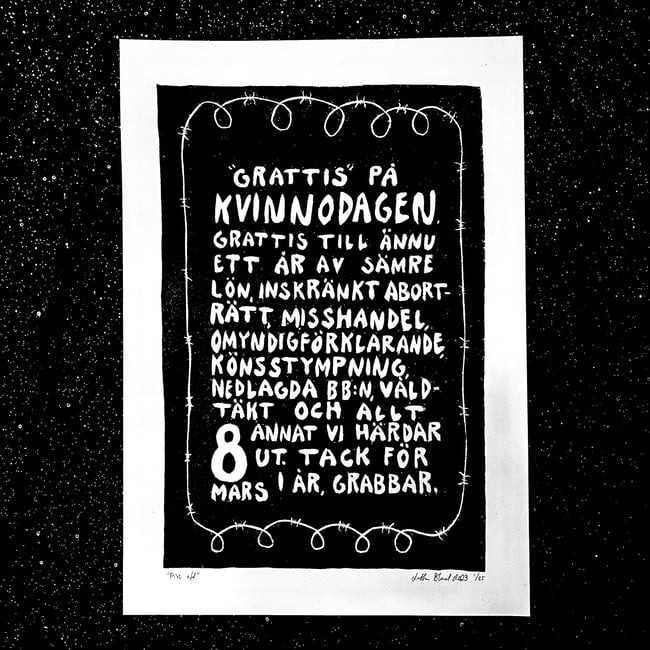 "GRATTIS" PÅ
KVINNODAGEN.
GRATTIS TILL ÄNNU
ETT ÅR AV SÄMRE
LÖN, INSKRÄNKT ABORT-
RÄTT, MISSHANDEL,
OMYNDIGFÖRKLARANDE,
KÖNSSTYMPNING,
NEDLAGDA BB:N, VÅLD-
TÄKT OCH ALLT
ANNAT VI HÄRDAR
8 UT. TACK FÖR
MARS I ÅR, GRABBAR.
"Piss off" 2023 1/25